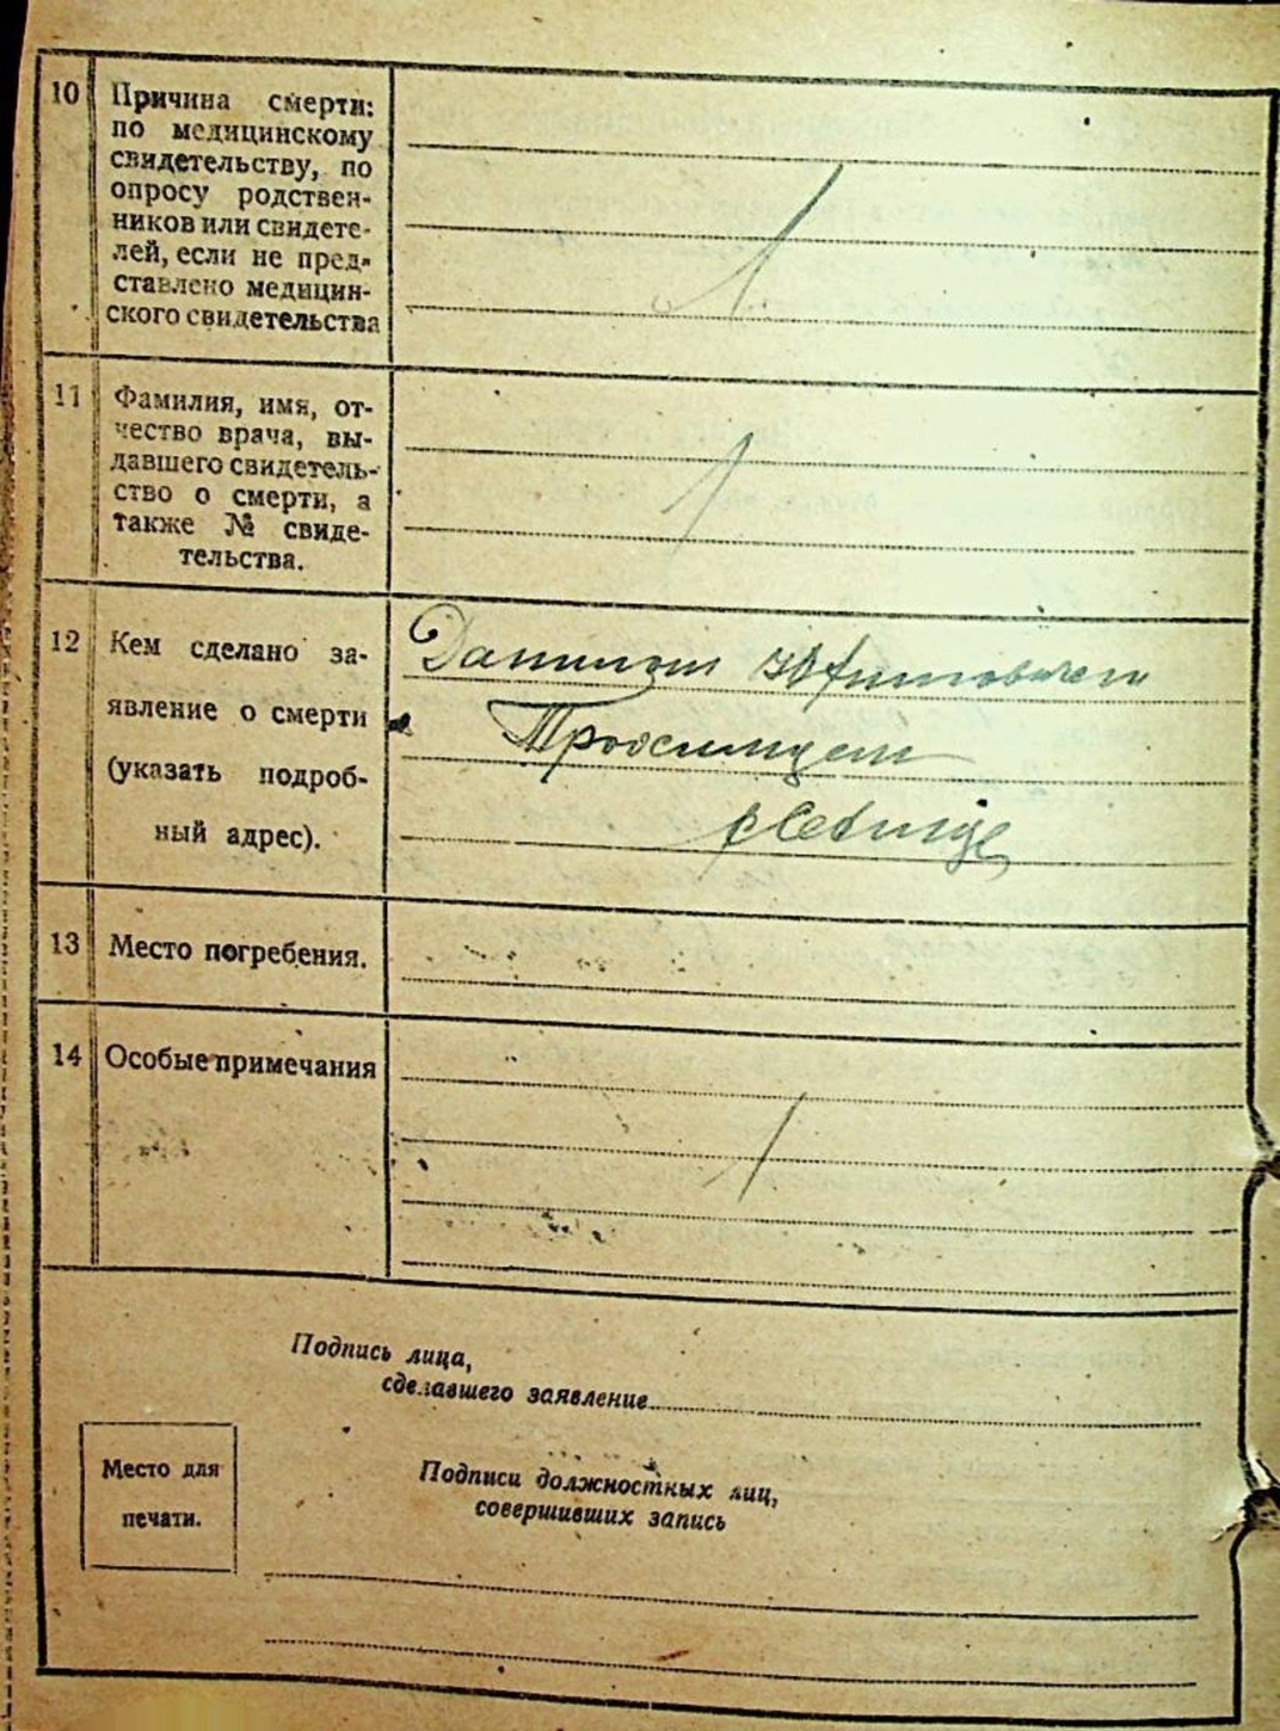 10 Причина смерти:
по медицинскому
свидетельству, по
опросу родствен-
ников или свидете-
лей, если не пред-
ставлено медицин-
ского свидетельства
11 Фамилия, имя, от-
чество врача, вы-
давшего свидетель-
ство о смерти, а
также № свиде-
тельства.
12 Кем сделано за-
явление о смерти
(указать подроб-
ный адрес).
Данилом
13 Место погребения.
14 Особые примечания
Подпись лица,
сделавшего заявление
Место для
печати.
Подписи должностных лиц,
совершивших запись